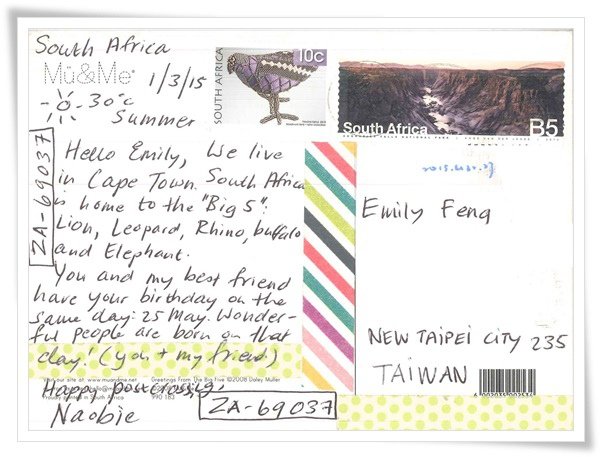 South Africa
Mü&Me
1/3/15
30°c
Summer
SOUTH AFRICA
10c
South Africa
B5
ZA-69037
Hello Emily, We live
in Cape Town. South Africa
is home to the "Big 5":
Lion, Leopard, Rhino, buffalo
and Elephant.
You and my best friend
have your birthday on the
same day: 25 May. Wonder-
ful people are born on that
day! (you + my friend)
Happy postcrossing,
Naobie
Visit our site at. www.muandme.net
Greetings From The Big Five ©2008 Daley Muller
Printed in South Africa
990 183
ZA-69037
Emily Feng
NEW TAIPEI CITY 235
TAIWAN